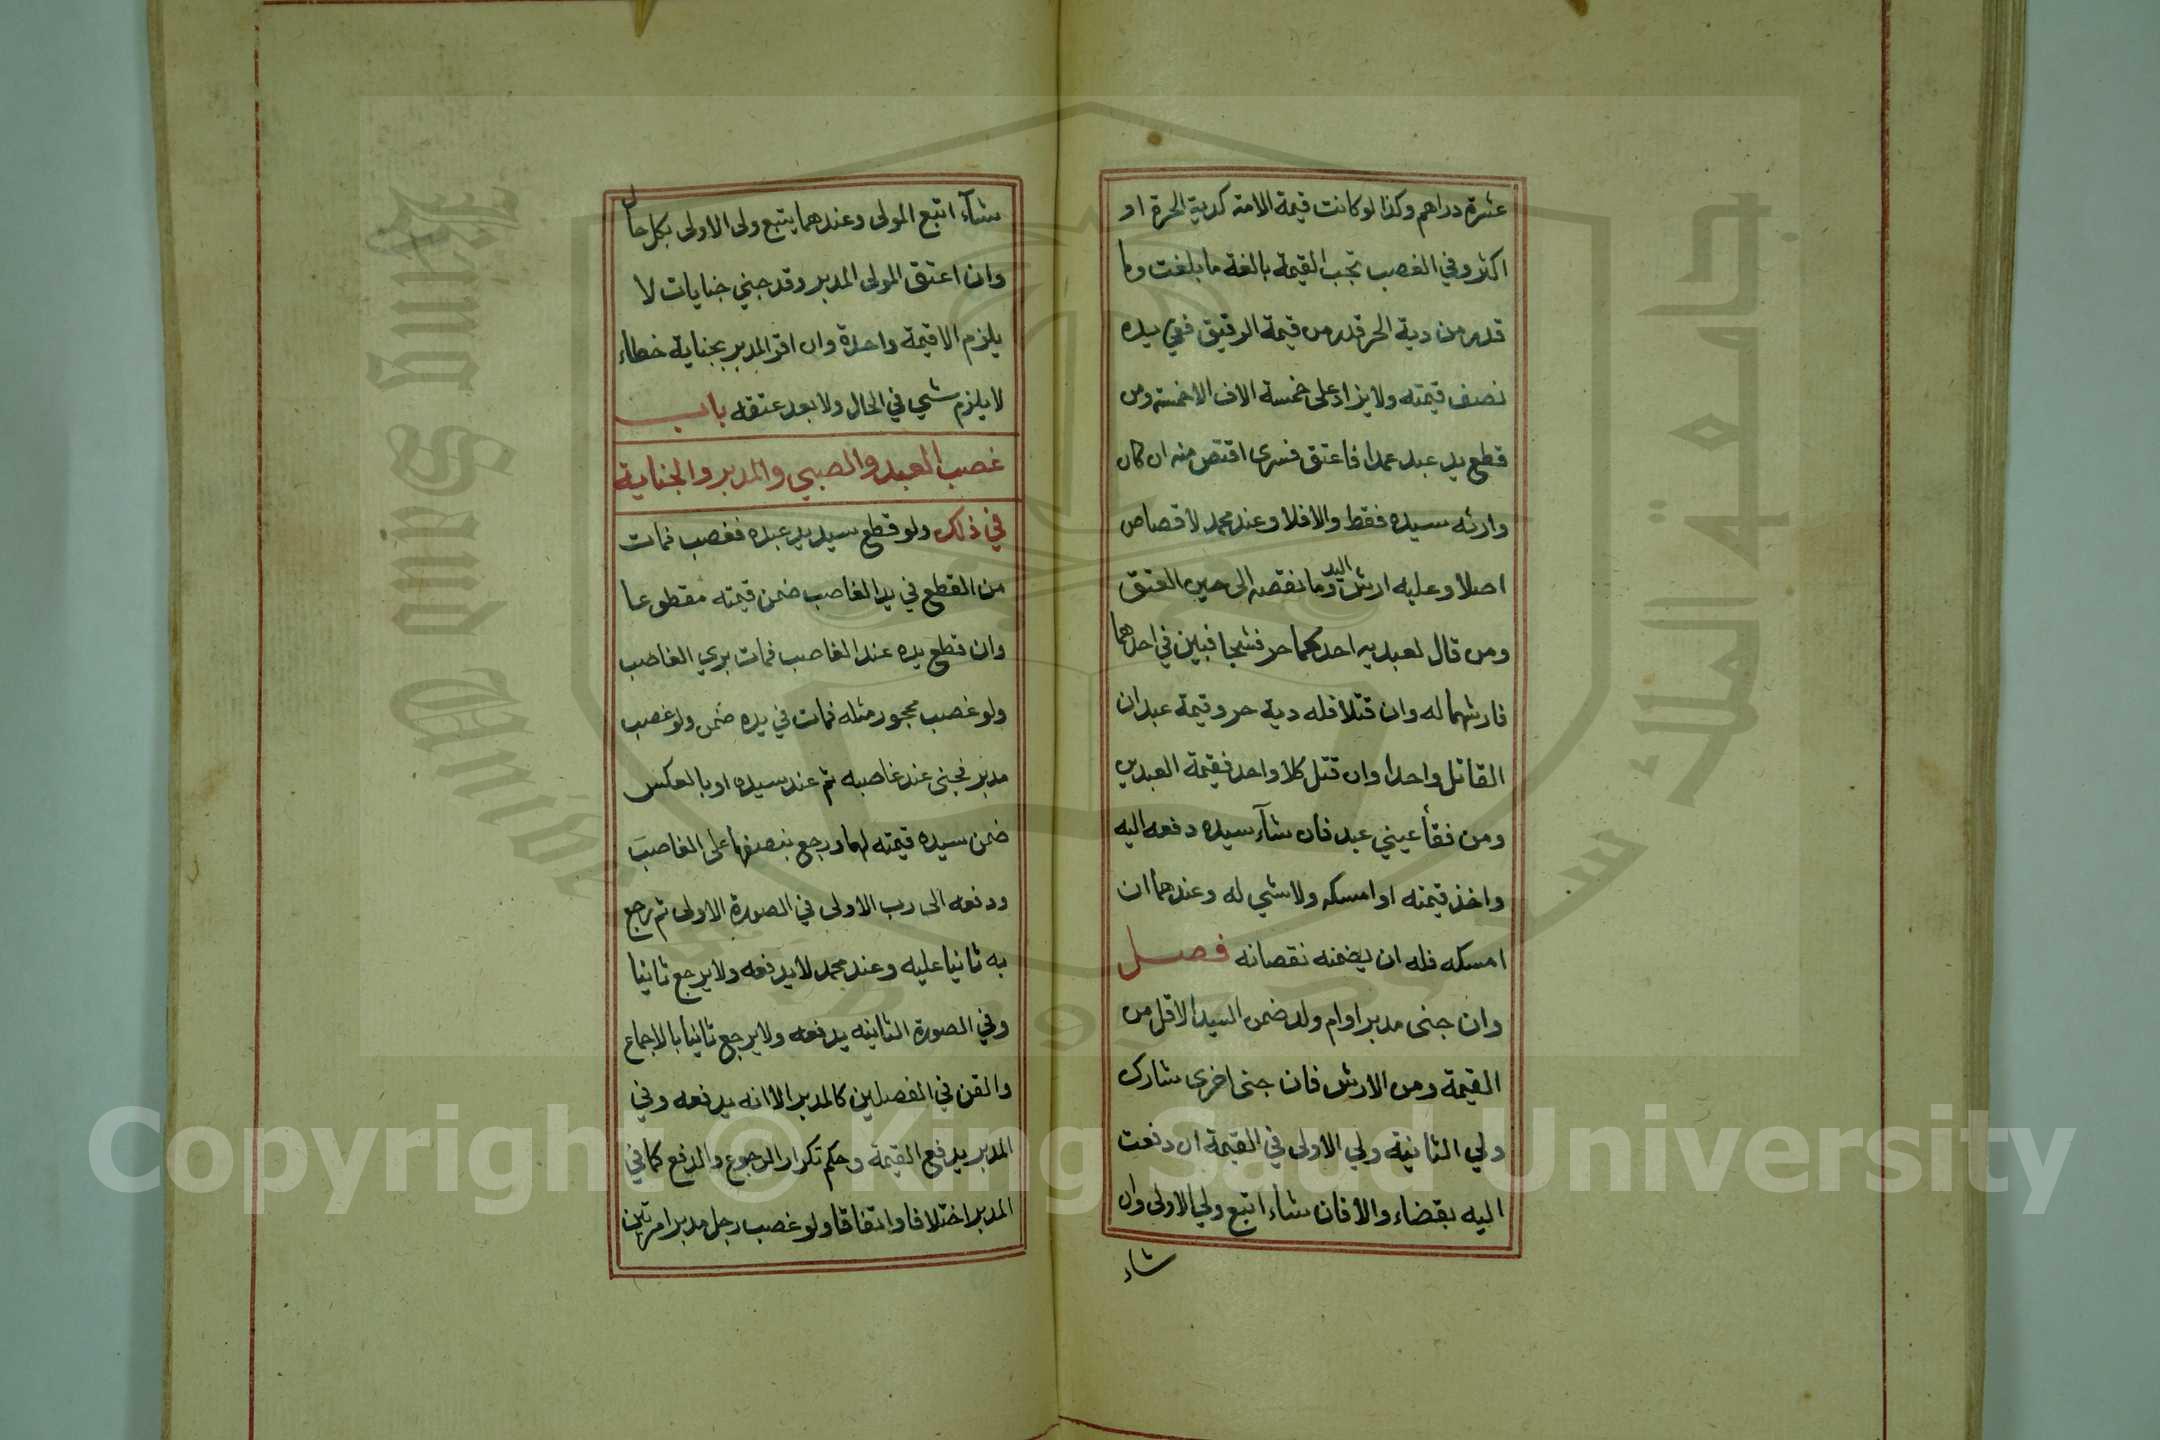 عشرة دراهم وكذا لو كانت قيمة الامة كدية الحرة او
اكثر وفي الغصب تجب القيمة بالغة ما بلغت وما
قدر من دية الحر قدر من قيمة الرقيق ففي يده
نصف قيمته ولا يزاد على خمسة الاف الا خمسة ومن
قطع يد عبد عمدا فاعتق فسرى اقتص منه ان كان
وارثه سيده فقط والا فلا وعند محمد لا قصاص
اصلا وعليه ارش اليد وما نقصه الى حين العتق
ومن قال لعبديه احدكما حر فشجا فبين في احدهما
فارشهما له وان قتلا فله دية حر وقيمة عبد ان
القاتل واحدا وان قتل كلا واحد فقيمة العبدين
ومن فقأ عيني عبد فان شآء سيده دفعه اليه
واخذ قيمته او امسكه ولا شي له وعندهما ان
امسكه فله ان يضمنه نقصانه فصل
وان جنى مدبر او ام ولد ضمن السيد الاقل من
القيمة ومن الارش فان جنى اخرى شارك
ولي الثانية ولي الاولى في القيمة ان دفعت
اليه بقضاء والا فان شاء اتبع ولي الاولى وان
شاء
شآء اتبع المولى وعندهما يتبع ولى الاولى بكل حال
وان اعتق المولى المدبر وقد جني جنايات لا
يلزم الا قيمة واحدة وان اقر المدبر بجناية خطاء
لا يلزم شي في الحال ولا بعد عتقه باب
غصب العبد والصبي والمدبر والجناية
في ذلك ولو قطع سيد يد عبده فغصب فمات
من القطع في يد الغاصب ضمن قيمته مقطوعا
وان قطع يده عند الغاصب فمات بري الغاصب
ولو غصب محجور مثله فمات في يده ضمن ولو غصب
مدبر فجنى عند غاصبه ثم عند سيده او بالعكس
ضمن سيده قيمته لهما ورجع بنصفها على الغاصب
ودفعه الى رب الاولى في الصورة الاولى ثم رجع
به ثانيا عليه وعند محمد لا يدفعه ولا يرجع ثانيا
وفي الصورة الثانيه يدفعه ولا يرجع ثانيا بالاجماع
والقن في الفصلين كالمدبر الا انه يدفعه وفي
المدبر يدفع القيمة وحكم تكرار الرجوع والدفع كما في
المدبر اختلافا واتفاقا ولو غصب رجل مدبرا مرتين
King Saud University
جامعة الملك سعود
1957
Copyright © King Saud University